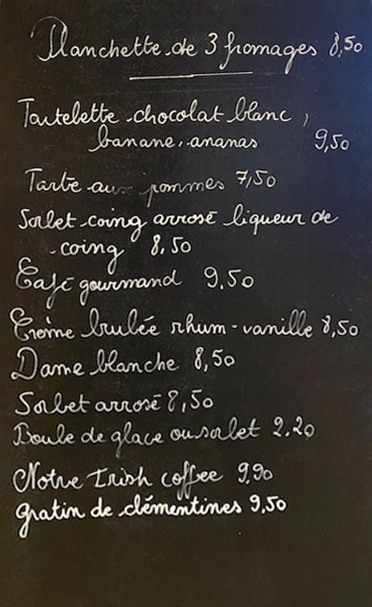 Planchette de 3 fromages 8,50
Tartelette chocolat blanc,
banane, ananas 9,50
Tarte aux pommes 7,50
Sorbet coing arrosé liqueur de
coing 8,50
Café gourmand 9,50
Crème brulée rhum-vanille 8,50
Dame blanche 8,50
Sorbet arrosé 8,50
Boule de glace ou sorbet 2.20
Notre Irish coffee 9,90
gratin de clémentines 9,50